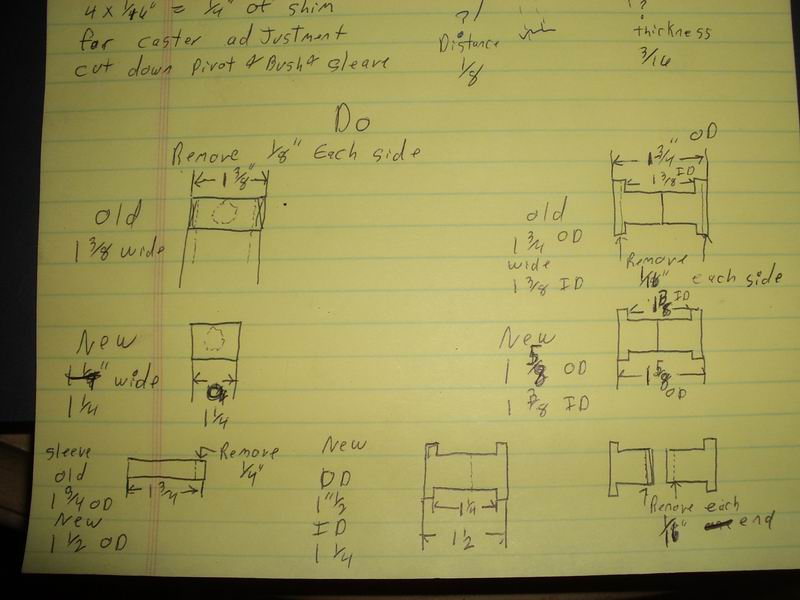 4 x 1/16" = 1/4" of shim
for caster adJustment
cut down Pivot & Bush& sleave
?
Distance
1/8
?
thickness
3/16
Do
Remove 1/8" Each side
1 3/8"
old
1 3/8 wide
1 3/4" OD
1 3/8 ID
old
1 3/4 OD
wide
1 3/8 ID
Remove
1/16" each side
New
wide
1 1/4
1 1/4
ID
New
1 5/8 OD
1 3/8 ID
1 5/8
OD
sleeve
old
1 3/4 OD
New
1 1/2 OD
1 3/4
Remove
1/4"
New
OD
1" 1/2
ID
1 1/4
1 1/4
1 1/2
Remove each
1/16" end